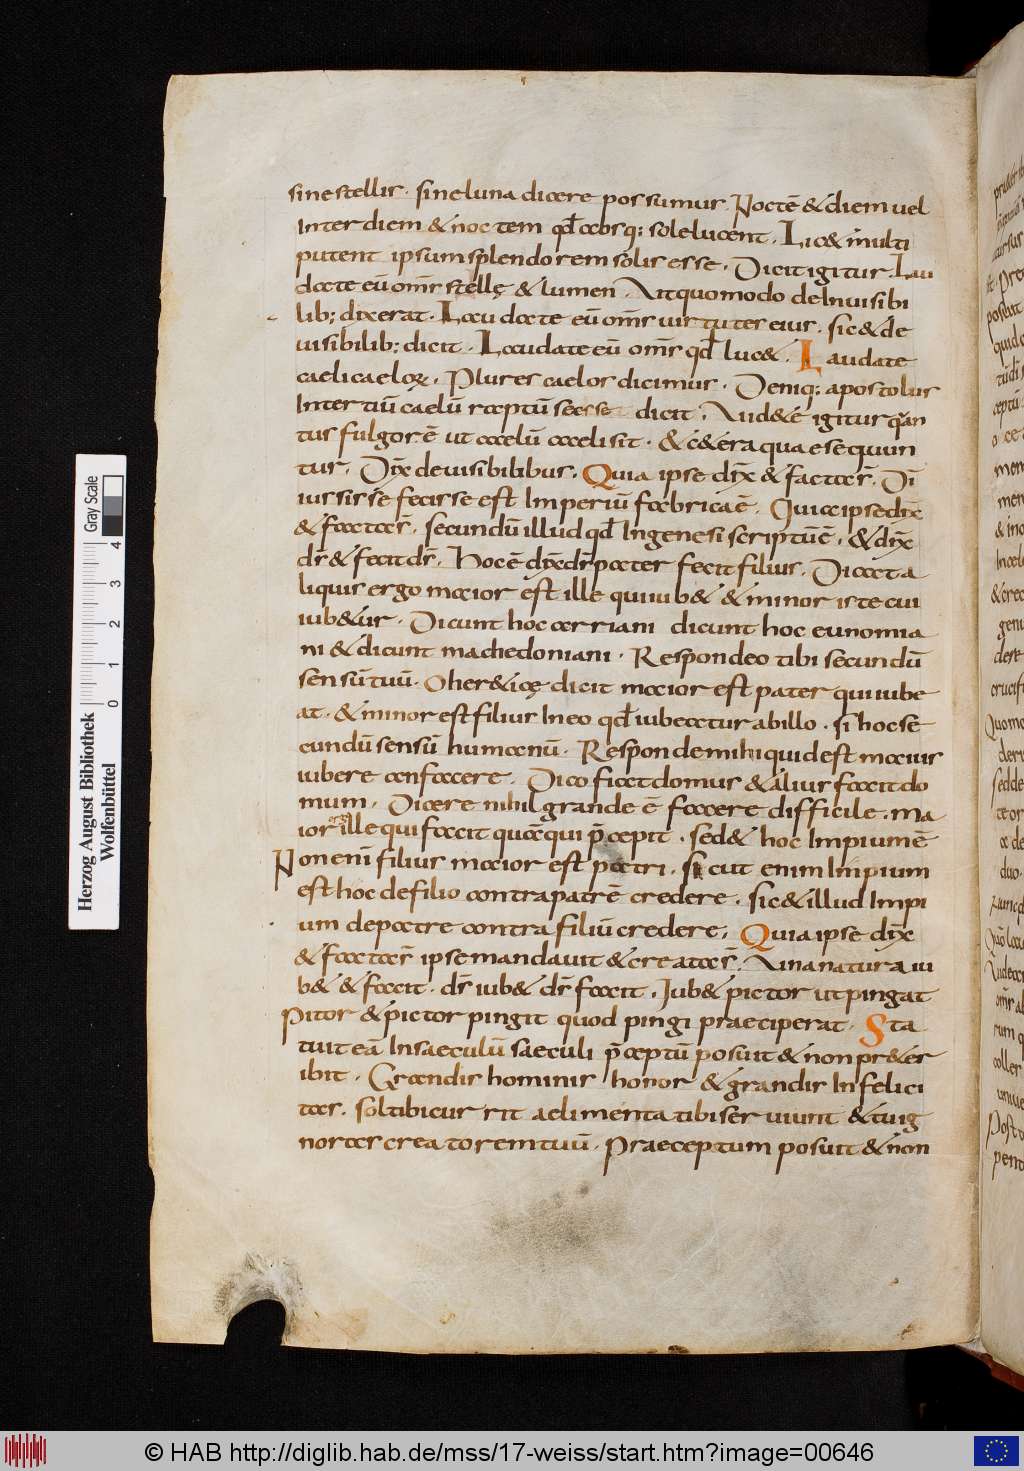 sine stellis · sine luna dicere possumus · Noctē & diem uel
Inter diem & noctem qđ absq; sole lucent · Lic& multi
putent ipsum splendorem solis esse · Dicit igitur · Lau
date eū om̄s stellę & lumen · Ait quomodo de Inuisibi
lib; dixerat · Laudate eū om̄s uirtutes eius · sic & de
uisibilib; dicit · Laudate eū om̄s qđ luc& · Laudate
caeli caeloꝝ · Plures caelos dicimus · Deniq; apostolus
In tertiū caelū raptū se esse dicit · Uid&e igitur quan
tus fulgor ē ut caelū caeli sit · & c&era quae sequun
tur · Dix̄ de uisibilibus · Quia ipse dix̄ & facta s̄ · Di
iussisse fecisse est Imperiū fabrica ē · Quia ipse dix̄
& facta s̄ · secundū illud qđ In genesi scriptū ē · & dix̄
ds̄ & fecit ds̄ · Hoc ē dix̄ ds̄ pater fecit filius · Dicat a
liquis ergo maior est ille qui iub& & minor iste cui
iub&ur · Dicunt hoc arriani dicunt hoc eunomia
ni & dicunt machedoniani · Respondeo tibi secundū
sensū tuū · O her&icę dicit maior est pater qui iube
at · & minor est filius In eo qđ iubeatur ab illo · si hoc se
cundū sensū humanū · Responde mihi quid est maius
iubere an facere · Dico fiat domus & alius facit do
mum · Dicere nihil grande ē facere difficile · ma
ior ergo ille qui facit quā qui p̄cepit · sed & hoc Impium ē
Non enī filius maior est patri · sicut enim Impium
est hoc de filio contra patrē credere · sic & illud Impi
um de patre contra filiū credere · Quia ipse dix̄
& facta s̄ ipse mandauit & creata s̄ · Una natura iu
b& & facit · ds̄ iub& ds̄ facit · Iub& pictor ut pingat
pitor & pictor pingit quod pingi praeciperat · Sta
tuit ea In saeculū saeculi p̄ceptū posuit & non pr&er
ibit · Grandis hominis honor & grandis Infelici
tas · sol tibi currit aelimenta tibi seruiunt & tu ig
noras creatorem tuū · Praeceptum posuit & non
Herzog August Bibliothek
Wolfenbüttel
0 1 2 3 4
Gray Scale
© HAB http://diglib.hab.de/mss/17-weiss/start.htm?image=00646